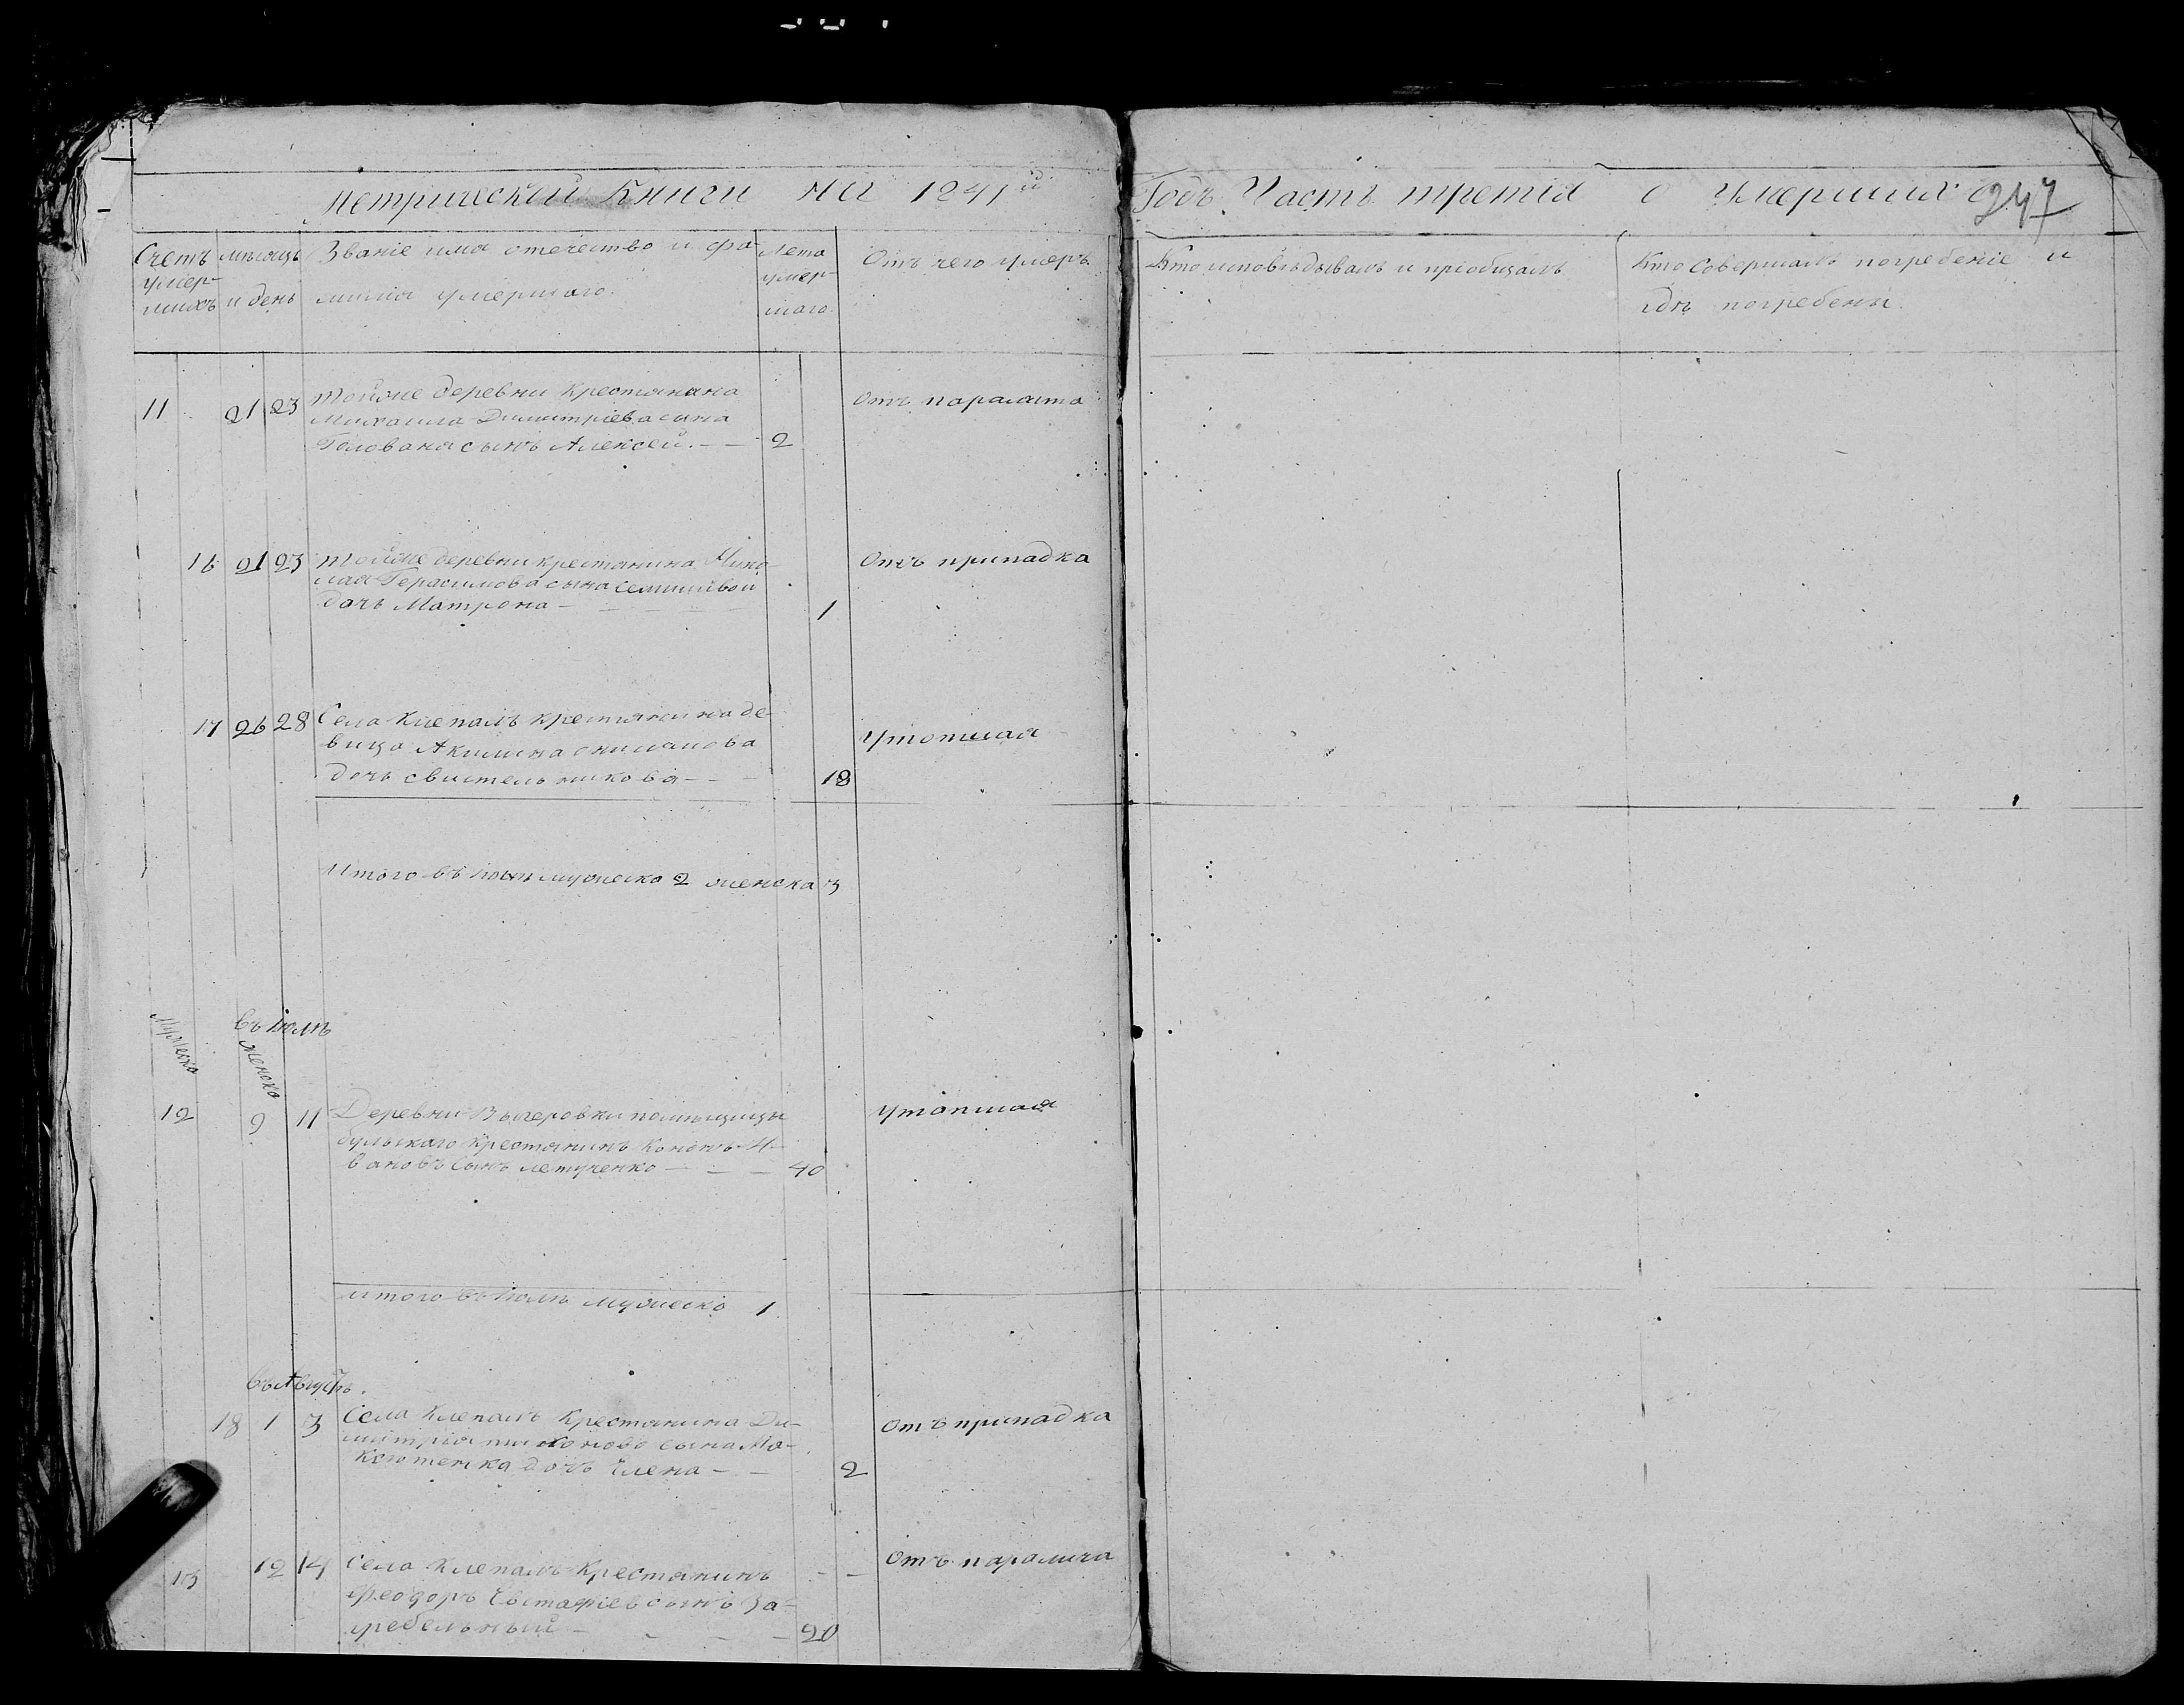 Метрической Книги на 1841й Годъ Часть третія о Умершихъ
247
Счетъ умер-шихъ
мѣсяцъ и день
Званіе имя отечество и фа-
милія умершаго.
Лета умер-шаго
Отъ чего умеръ
Кто исповѣдывалъ и пріобщалъ
Кто Совершалъ погребеніе и
гдѣ погребены
11 21 23 тойже деревни крестянина
Михаила Димитріева сына
Голована сынъ Алексей. — — 2
Отъ
16 21 23 тойже деревни крестянина Нико-
лая Герасимова сына
дочь Матрона — 1
Отъ припадка
17 26 28 Села Клепалъ крестянина де-
вица Акилина
дочь свистельникова — — 18
Утопшая
Итого въ мужеска 2 женска 3
въ Іюлѣ
Мужеска
женска
12 9 11 Деревни помѣщицы
крестянинъ Кононъ И-
вановъ Сынъ летученко — — — 40
Утопшая
итого въ Іюлѣ мужеско 1
въ Августѣ.
18 1 3 Села Клепалъ Крестянина Ди-
митрія сына Ма-
ксютенка дочь Елена — — 2
отъ припадка
13 12 14 Села Клепалъ Крестянинъ
Феодоръ Евстафіевъ сынъ За-
гребельный — 90
Отъ паралича